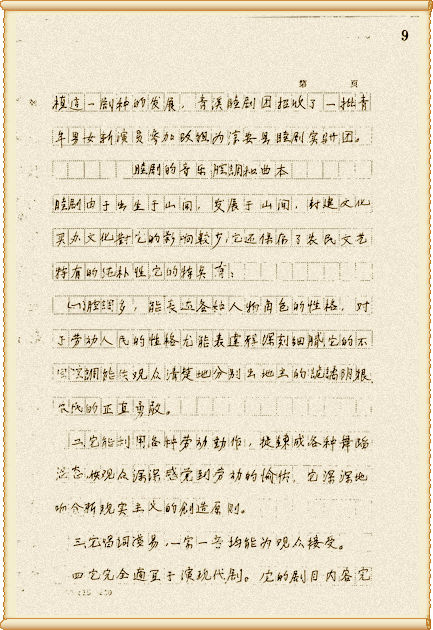 9
第 页
植这一剧种的发展，青溪睦剧团招收了一批青
年男女新演员参加改组为淳安县睦剧实验团。
睦剧的音乐腔調和曲本
睦剧由于出生于山间，发展于山间，封建文化
买办文化對它的影响較少，它还保存了农民文艺
特有的纯朴性它的特奌有：
㈠腔調多，能表达各种人物角色的性格，对
于劳动人民的性格尤能表達得深刻細膩它的不
同深調能使观众清楚地分别出地主的詭譎阴狠
农民的正直勇敢。
二它能利用各种劳动動作，提鍊成各种舞蹈
姿态使观众深深感觉到劳动的愉快，它深深地
吻合新现实主义的創造原则。
三它唱詞淺易，一字一音均能为观众接受。
四它完全適宜于演现代剧。它的剧目内容完